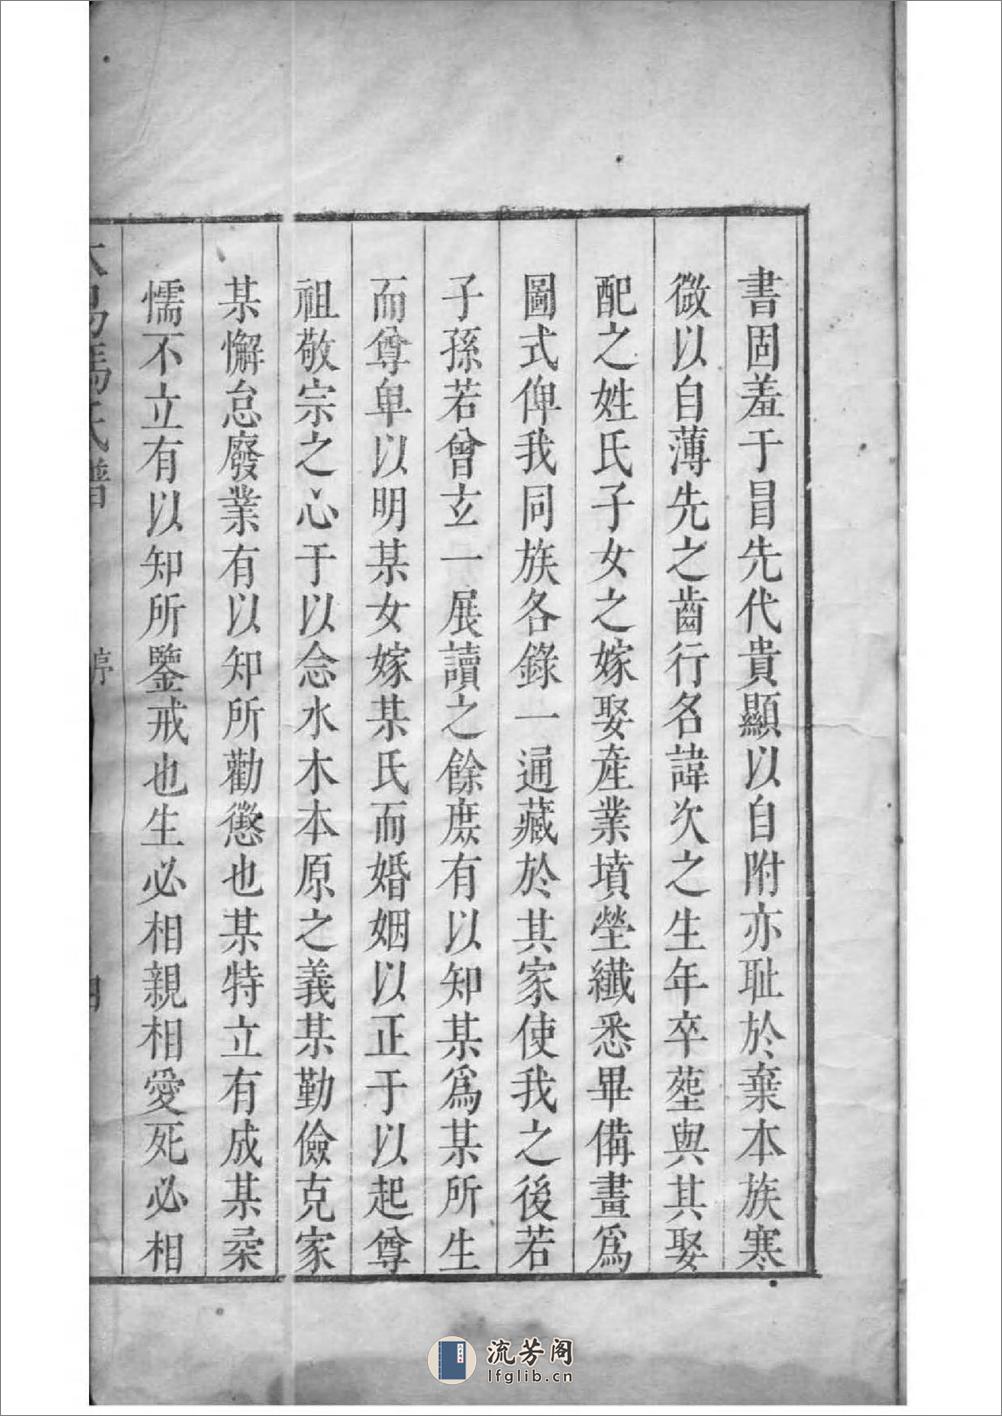 書固羞于冒先代貴顯以自附亦耻於棄本族寒
微以自薄先之齒行名諱次之生年卒塟與其娶
配之姓氏子女之嫁娶產業墳塋纎悉畢備畫爲
圖式俾我同族各錄一通藏於其家使我之後若
子孫若曾玄一展讀之餘庶有以知某爲某所生
而尊卑以明某女嫁某氏而婚姻以正于以起尊
祖敬宗之心于以念水木本原之義某勤儉克家
某懈怠廢業有以知所勸懲也某特立有成某柔
懦不立有以知所鑒戒也生必相親相愛死必相
馮氏譜
流芳阁
lfglib.cn